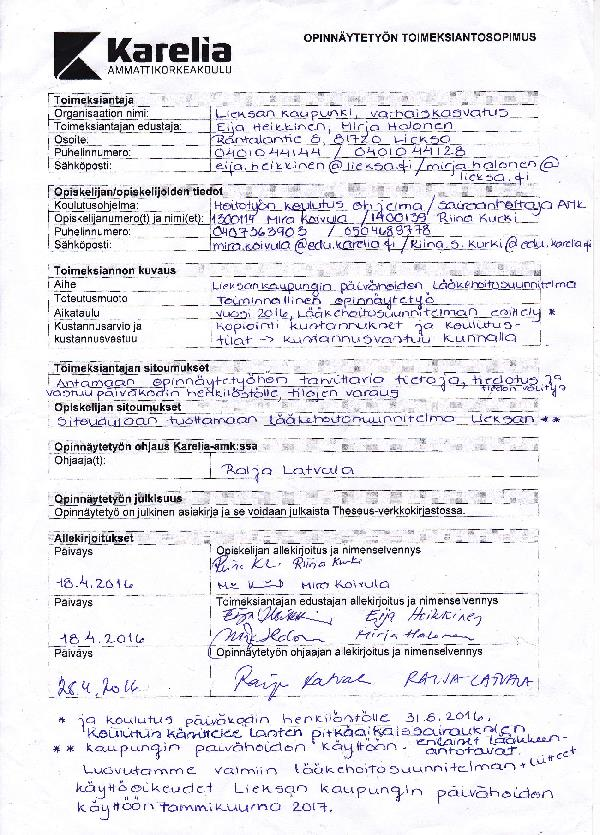 OPINNÄYTETYÖN TOIMEKSIANTOSOPIMUS
Karelia
AMMATTIKORKEAKOULU
Toimeksiantaja
Organisaation nimi: Lieksan kaupunki, varhaiskasvatus
Toimeksiantajan edustaja: Eija Heikkinen, Mirja Halonen
Osoite: Rantalantie 6, 81720 Lieksa
Puhelinnumero: 0401044144 / 0401044128
Sähköposti: eija.heikkinen@lieksa.fi/mirja.halonen@
lieksa.fi
Opiskelijan/opiskelijoiden tiedot
Koulutusohjelma: Hoitotyön koulutusohjelma/sairaanhoitaja AMK
Opiskelijanumero(t) ja nimi(et): 1300114 Mira Koivula /1400139 Riina Kurki
Puhelinnumero: 0407363903 / 0504689778
Sähköposti: mira.koivula@edu.karelia.fi /Riina.S.Kurki@edu.karelia.fi
Toimeksiannon kuvaus
Aihe Lieksan kaupungin päivähoidon lääkehoitosuunnitelma
Toteutusmuoto Toiminnallinen opinnäytetyö
Aikataulu vuosi 2016, Lääkehoitosuunnitelman esittely *
Kustannusarvio ja kopiointi kustannukset ja koulutus-
kustannusvastuu tilat → kustannusvastuu kunnalla
Toimeksiantajan sitoumukset
Antamaan opinnäytetyöhön tarvittavia tietoja, tiedotus ja
vastuu päiväkodin henkilöstölle, tilojen varaus tiedon välitys
Opiskelijan sitoumukset
Sitoudutaan tuottamaan lääkehoitosuunnitelma Lieksan **
Opinnäytetyön ohjaus Karelia-amk:ssa
Ohjaaja(t): Raija Latvala
Opinnäytetyön julkisuus
Opinnäytetyö on julkinen asiakirja ja se voidaan julkaista Theseus-verkkokirjastossa.
Allekirjoitukset
Päiväys Opiskelijan allekirjoitus ja nimenselvennys
Riina Kurki
18.4.2016 Mira Koivula
Päiväys Toimeksiantajan edustajan allekirjoitus ja nimenselvennys
Eija Heikkinen
18.4.2016 Mirja Halonen
Päiväys Opinnäytetyön ohjaajan allekirjoitus ja nimenselvennys
28.4.2016 Raija Latvala RAIJA LATVALA
* ja koulutus päiväkodin henkilöstölle 31.8.2016.
Koulutus käsittelee lasten pitkäaikaissairauksien
erilaiset lääkkeen-
** kaupungin päivähoidon käyttöön. antotavat.
Luovutamme valmiin lääkehoitosuunnitelman + liitteet
käyttöoikeudet Lieksan kaupungin päivähoidon
käyttöön tammikuuna 2017.